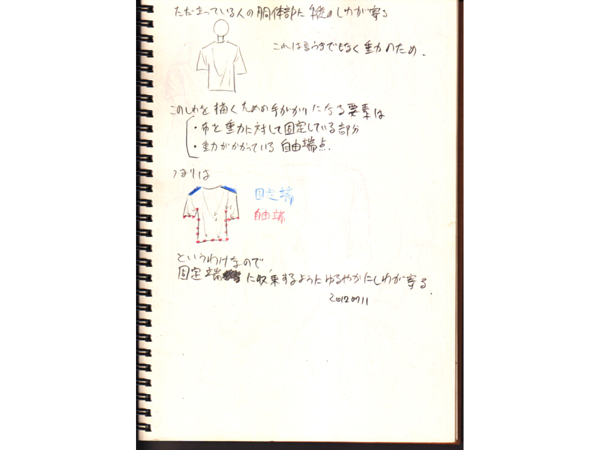 ただ立っている人の胴体部に縦のしわが寄る
これは言うまでもなく重力のため.
このしわを描くための手がかりになる要素は
・布を重力に対して固定している部分
・重力がかかっている自由端点.
つまりは
固定端
自由端
というわけなので
固定端に収束するようにゆるやかにしわが寄る.
20120711